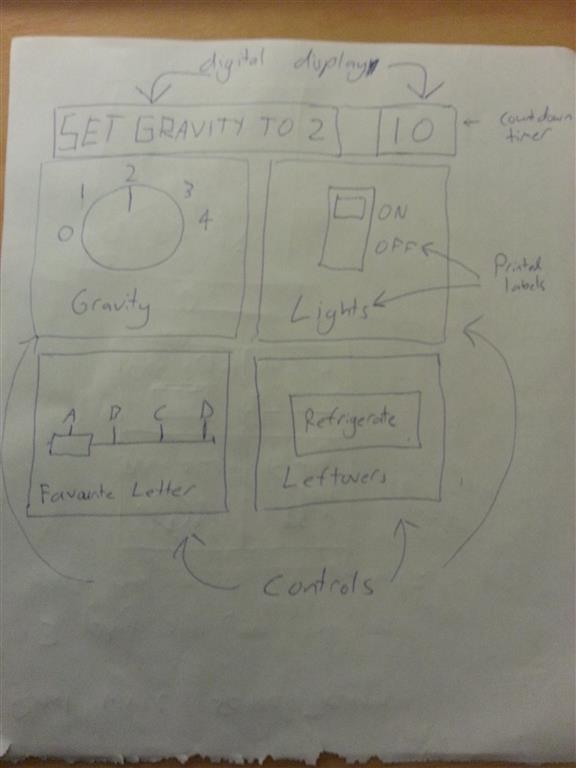 digital display
SET GRAVITY TO 2 10
countdown
timer
0 1 2 3 4
Gravity
ON
OFF
Lights
Printed
labels
A B C D
Favourite Letter
Refrigerate
Leftovers
Controls